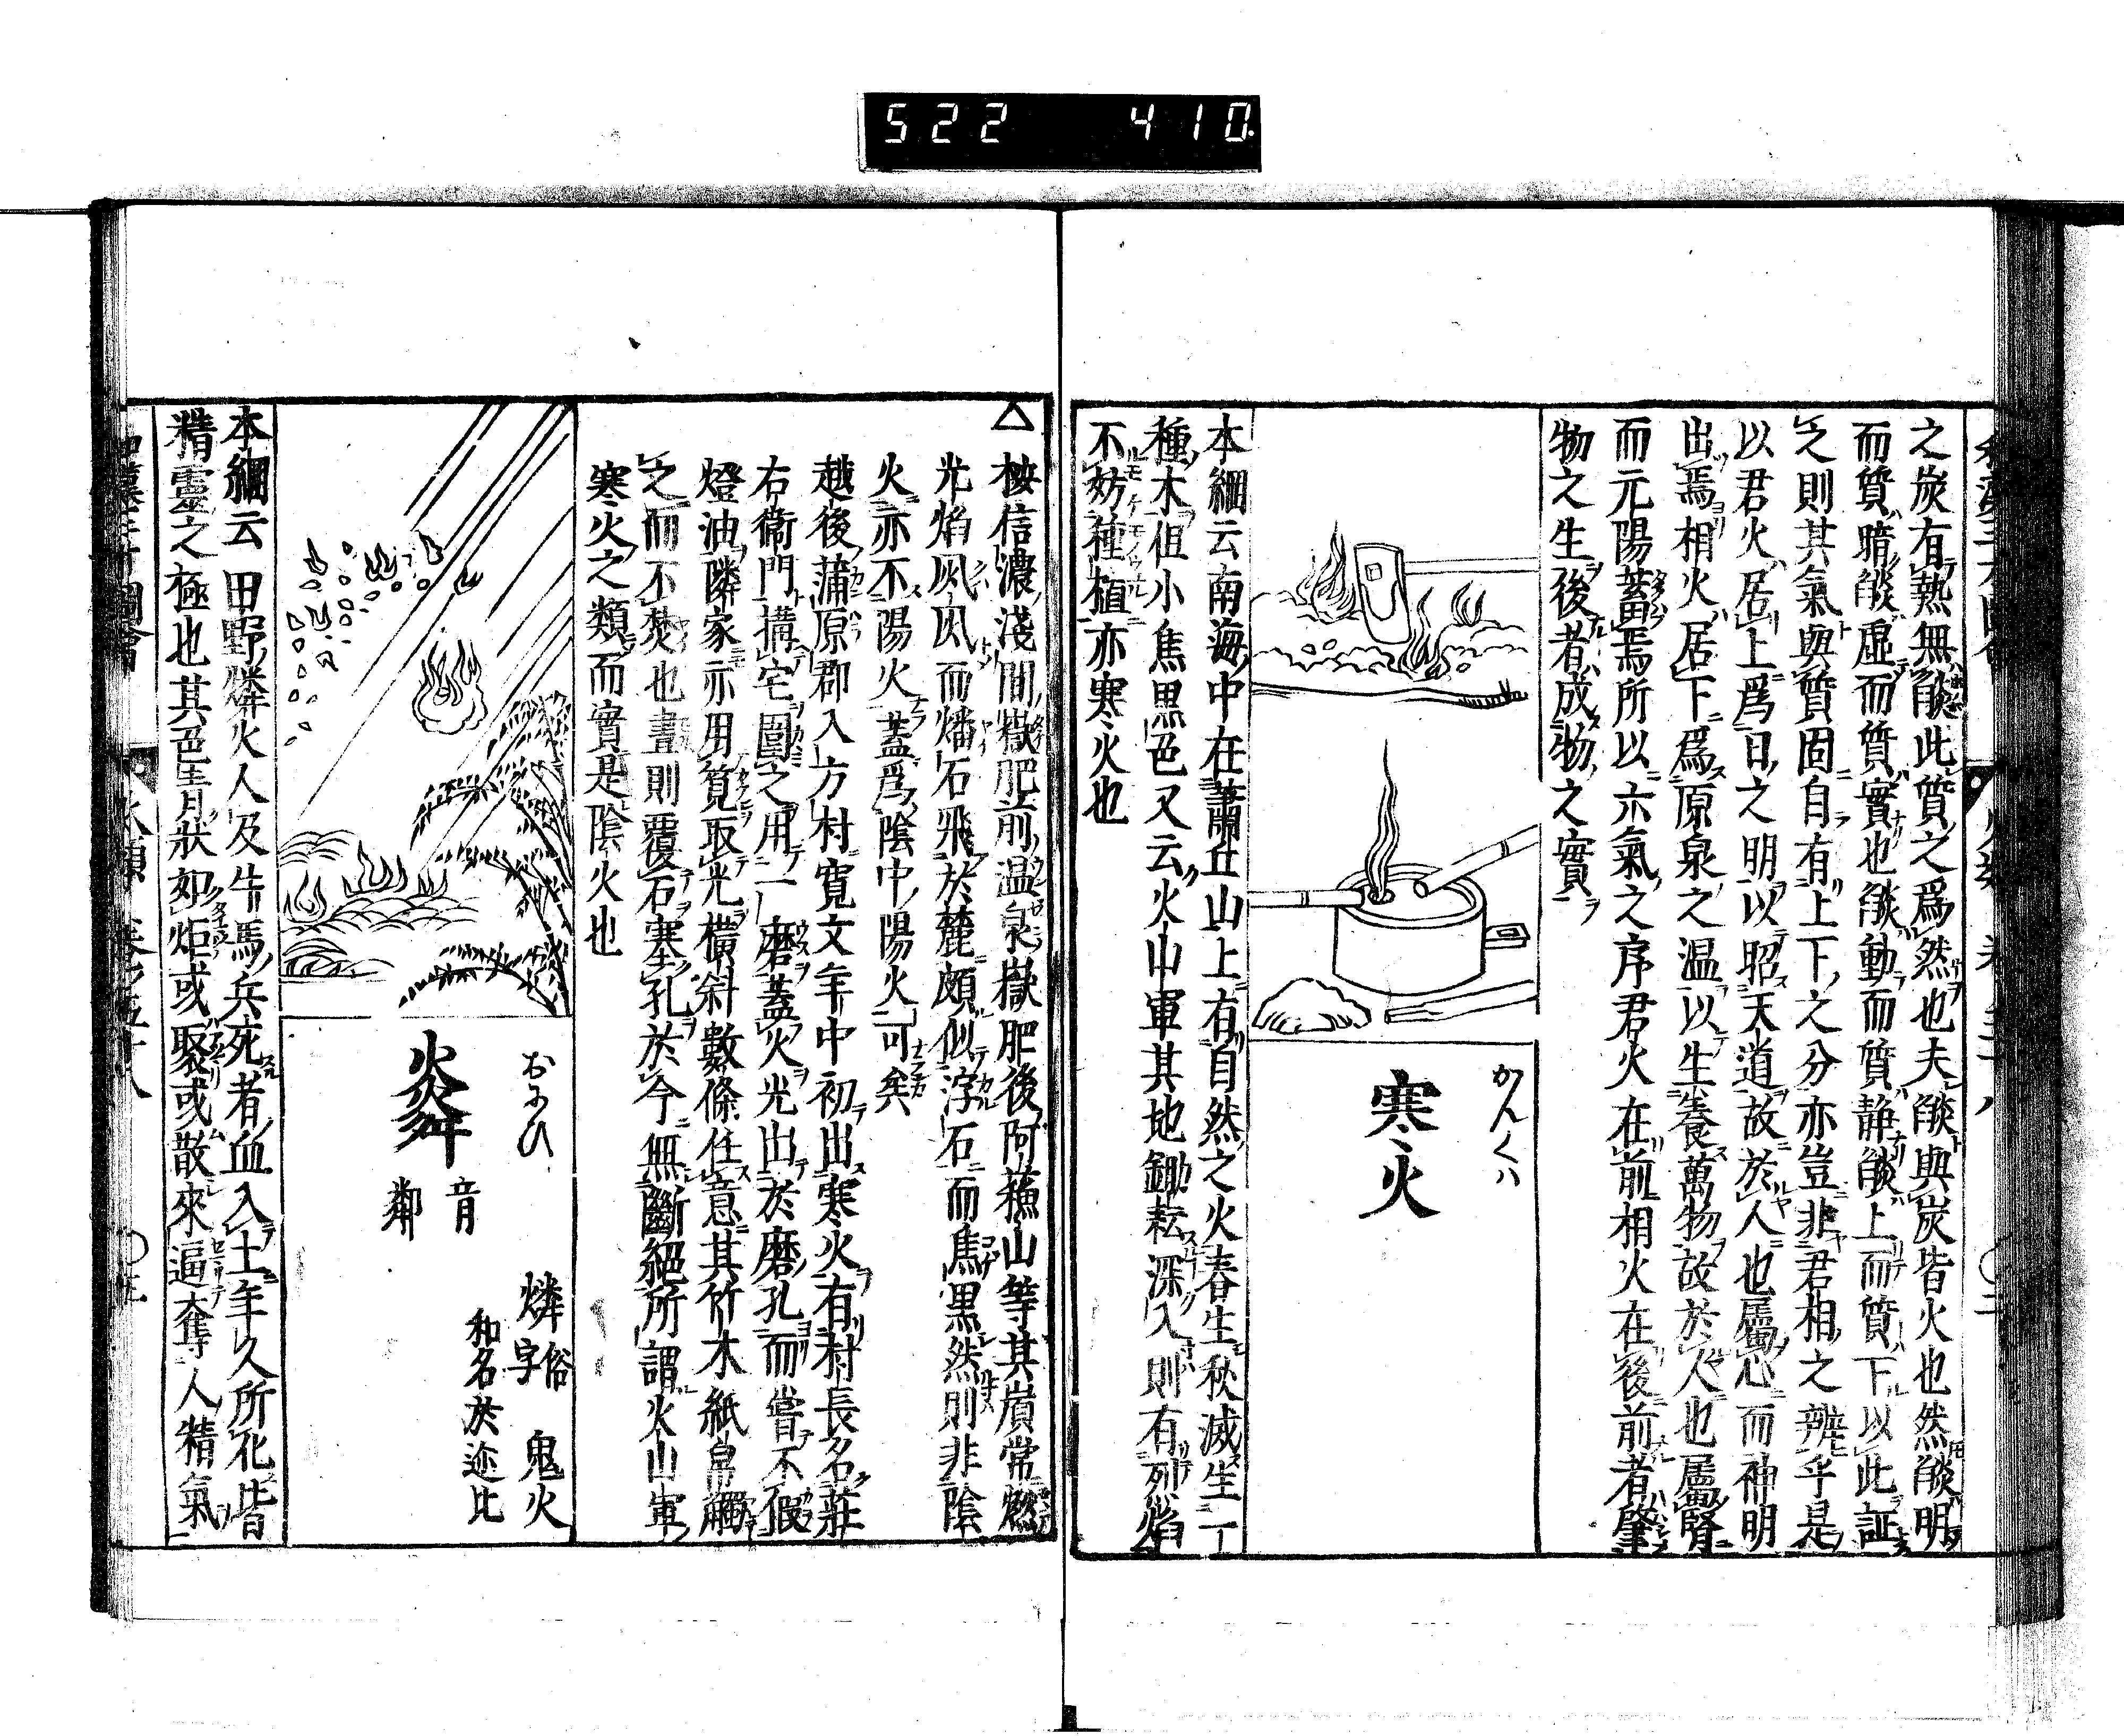 522 410
之炭有熱無燄此質之爲然也夫燄與炭皆火也然燄明
而質暗燄虛而質實也燄動而質静燄上而質下以此証
之則其氣與質固自有上下之分亦豈非君相之辨乎是
以君火居上爲日之明以昭天道故於人也屬心而神明
出焉相火居下爲原泉之温以生養萬物故於人也屬腎
而元陽蓄焉所以六氣之序君火在前相火在後前者肇
物之生後者成物之實
かんくハ
寒火
本綱云南海中在蕭丘山上有自然之火春生秋滅生一
種木但小焦黒色又云火山軍其地鋤耘深入則有烈焰
不妨種植亦寒火也
△
按信濃淺間嶽肥前温泉嶽肥後阿蘓山等其嵿常燃
光焰凨凨而燔石飛於麓頗似浮石而焦黒然則非陰
火亦不陽火蓋爲陰中陽火可矣
越後蒲原郡入方村寛文年中初出寒火有村長名莊
右衞門搆宅圍之用一磨蓋火光出於磨孔而嘗不假
燈油隣家亦用筧取光橫斜數條任意其竹木紙帛觸
之而不焚也晝則覆石塞孔於今無斷絕所謂火山軍
寒火之類而實是陰火也
おにひ
燐 俗字 鬼火
和名於迩比
㷠
音鄰
本綱云田野燐火人及牛馬兵死者血入土年久所化皆
精靈之極也其色青狀如炬或聚或散來逼奪人精氣